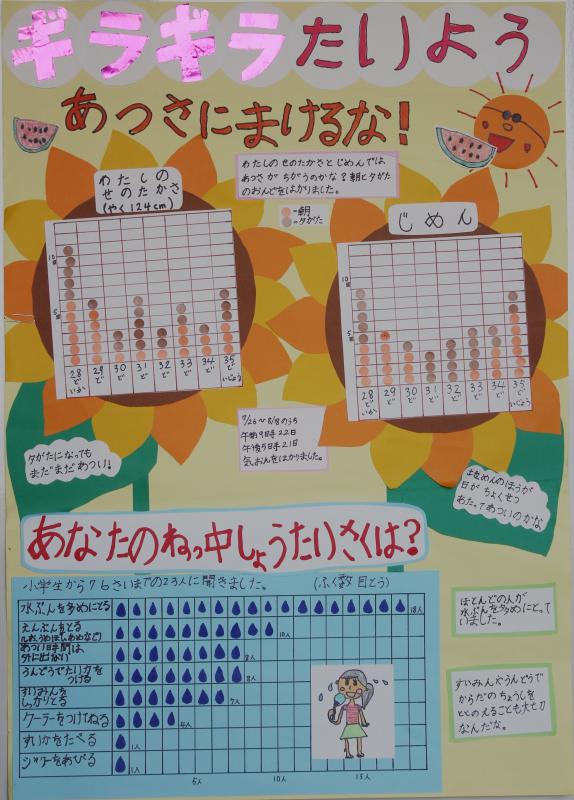 ギラギラたいよう
あつさにまけるな!
わたしの
せのたかさ
(やく124cm)
わたしの せのたかさ とじめんでは
あつさ がちがうのかな?朝とタがた
のおんどをはかりました。
-朝
-タがた
じめん
10
回
5
回
28
ど
いか
29
ど
30
ど
31
ど
32
ど
33
ど
34
ど
35
ど
いじょう
10
回
5
回
28
ど
いか
29
ど
30
ど
31
ど
32
ど
33
ど
34
ど
35
ど
いじょう
7/26~8/8のうち
午前9時 22日
午後5時 21日
気おんをはかりました。
タがたになっても
まだまだあつい!
じめんのほうが
日が ちょくせつ
あたってあついのかな
あなたのねっ中しょうたいさくは?
小学生から76さいまでの23人に聞きました。 (ふく数回とう)
水ぶんを多めにとる 18人
えんぶんをとる
(しお、うめぼし、あめなど) 10人
あつい時間は
外に出ない 8人
うんどうでたい力を
つける 8人
すいみんを
しっかりとる 7人
クーラーをつけねる 4人
すいかをたべる 1人
シャワーをあびる 1人
5人 10人 15人
ほとんどの人が
水ぶんを多めにとって
いました。
すいみんやうんどうで
からだのちょうしを
ととのえることも大せつ
なんだな。